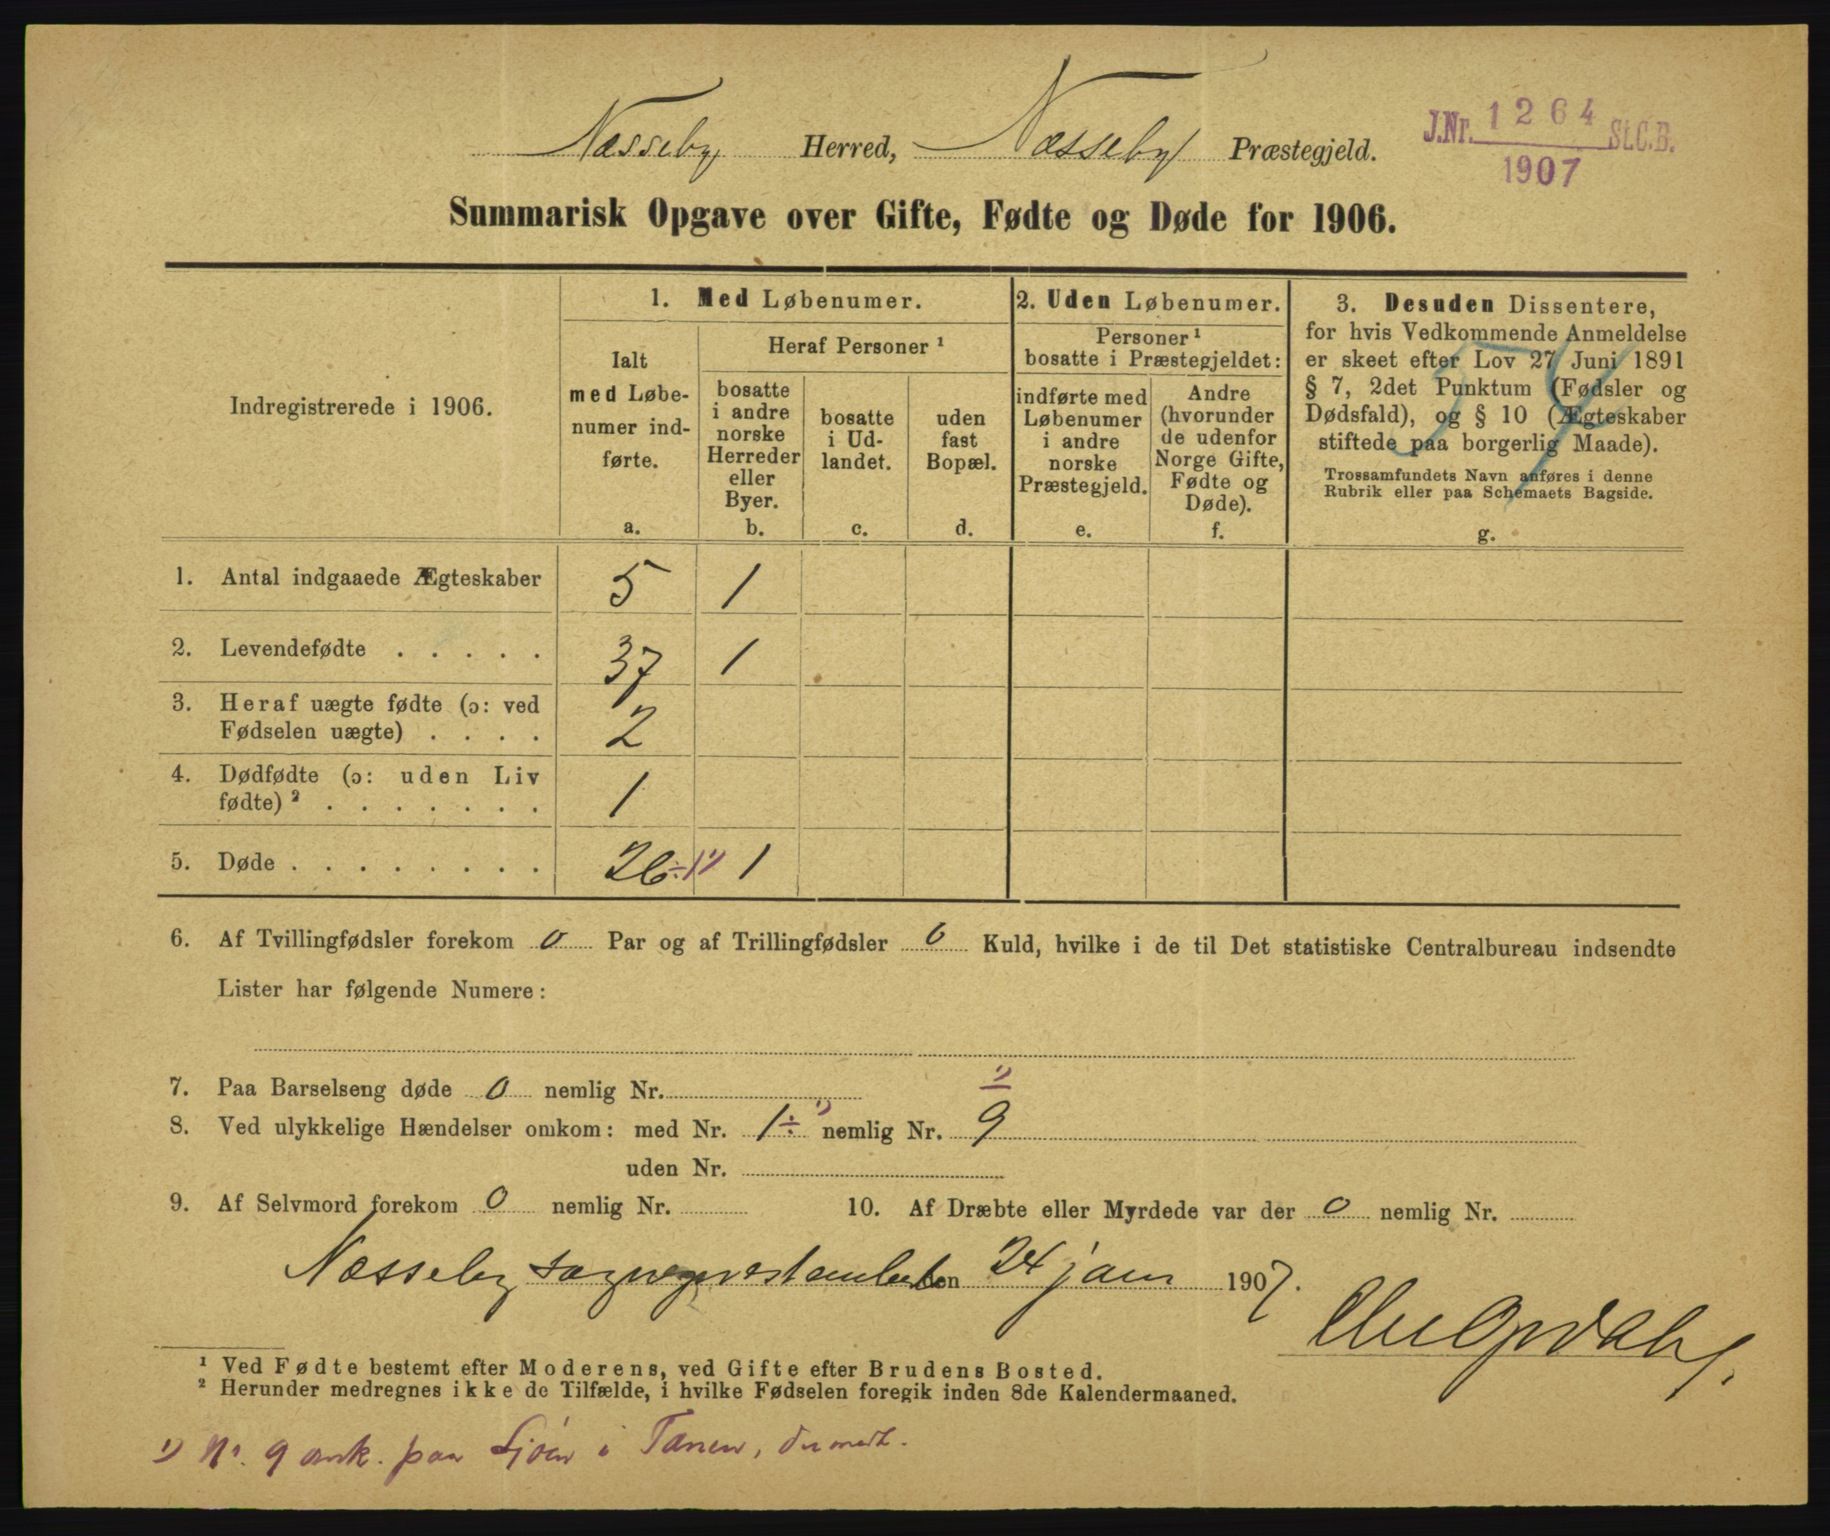 Næsseby Herred, Næsseby Præstegjeld.
J.Nr. 1264 St.C.B.
1907
Summarisk Opgave over Gifte, Fødte og Døde for 1906.
Indregistrerede i 1906.
1. Med Løbenumer.
Ialt
med Løbe-
numer ind-
førte.
a.
Heraf Personer ¹
bosatte
i andre
norske
Herreder
eller
Byer.
b.
bosatte
i Ud-
landet.
c.
uden
fast
Bopæl.
d.
2. Uden Løbenumer.
Personer ¹
bosatte i Præstegjeldet:
indførte med
Løbenumer
i andre
norske
Præstegjeld.
e.
Andre
(hvorunder
de udenfor
Norge Gifte,
Fødte og
Døde).
f.
3. Desuden Dissentere,
for hvis Vedkommende Anmeldelse
er skeet efter Lov 27 Juni 1891
§ 7, 2det Punktum (Fødsler og
Dødsfald), og § 10 (Ægteskaber
stiftede paa borgerlig Maade).
Trossamfundets Navn anføres i denne
Rubrik eller paa Schemaets Bagside.
g.
1. Antal indgaaede Ægteskaber 5 1
2. Levendefødte . . . . . 37 1
3. Heraf uægte fødte (ɔ: ved
Fødselen uægte) . . . . 2
4. Dødfødte (ɔ: uden Liv
fødte) ² . . . . . . . 1
5. Døde . . . . . . . . 26 ÷1 ¹) 1
6. Af Tvillingfødsler forekom 0 Par og af Trillingfødsler 0 Kuld, hvilke i de til Det statistiske Centralbureau indsendte
Lister har følgende Numere:
7. Paa Barselseng døde 0 nemlig Nr.
¹)
8. Ved ulykkelige Hændelser omkom: med Nr. 1 ÷ ¹) nemlig Nr. 9
uden Nr.
9. Af Selvmord forekom 0 nemlig Nr. 10. Af Dræbte eller Myrdede var der 0 nemlig Nr.
Næsseby den 24 jan 1907.
¹ Ved Fødte bestemt efter Moderens, ved Gifte efter Brudens Bosted.
² Herunder medregnes ikke de Tilfælde, i hvilke Fødselen foregik inden 8de Kalendermaaned.
¹) Nr. 9 omk. paa Sjøen i Tanen,